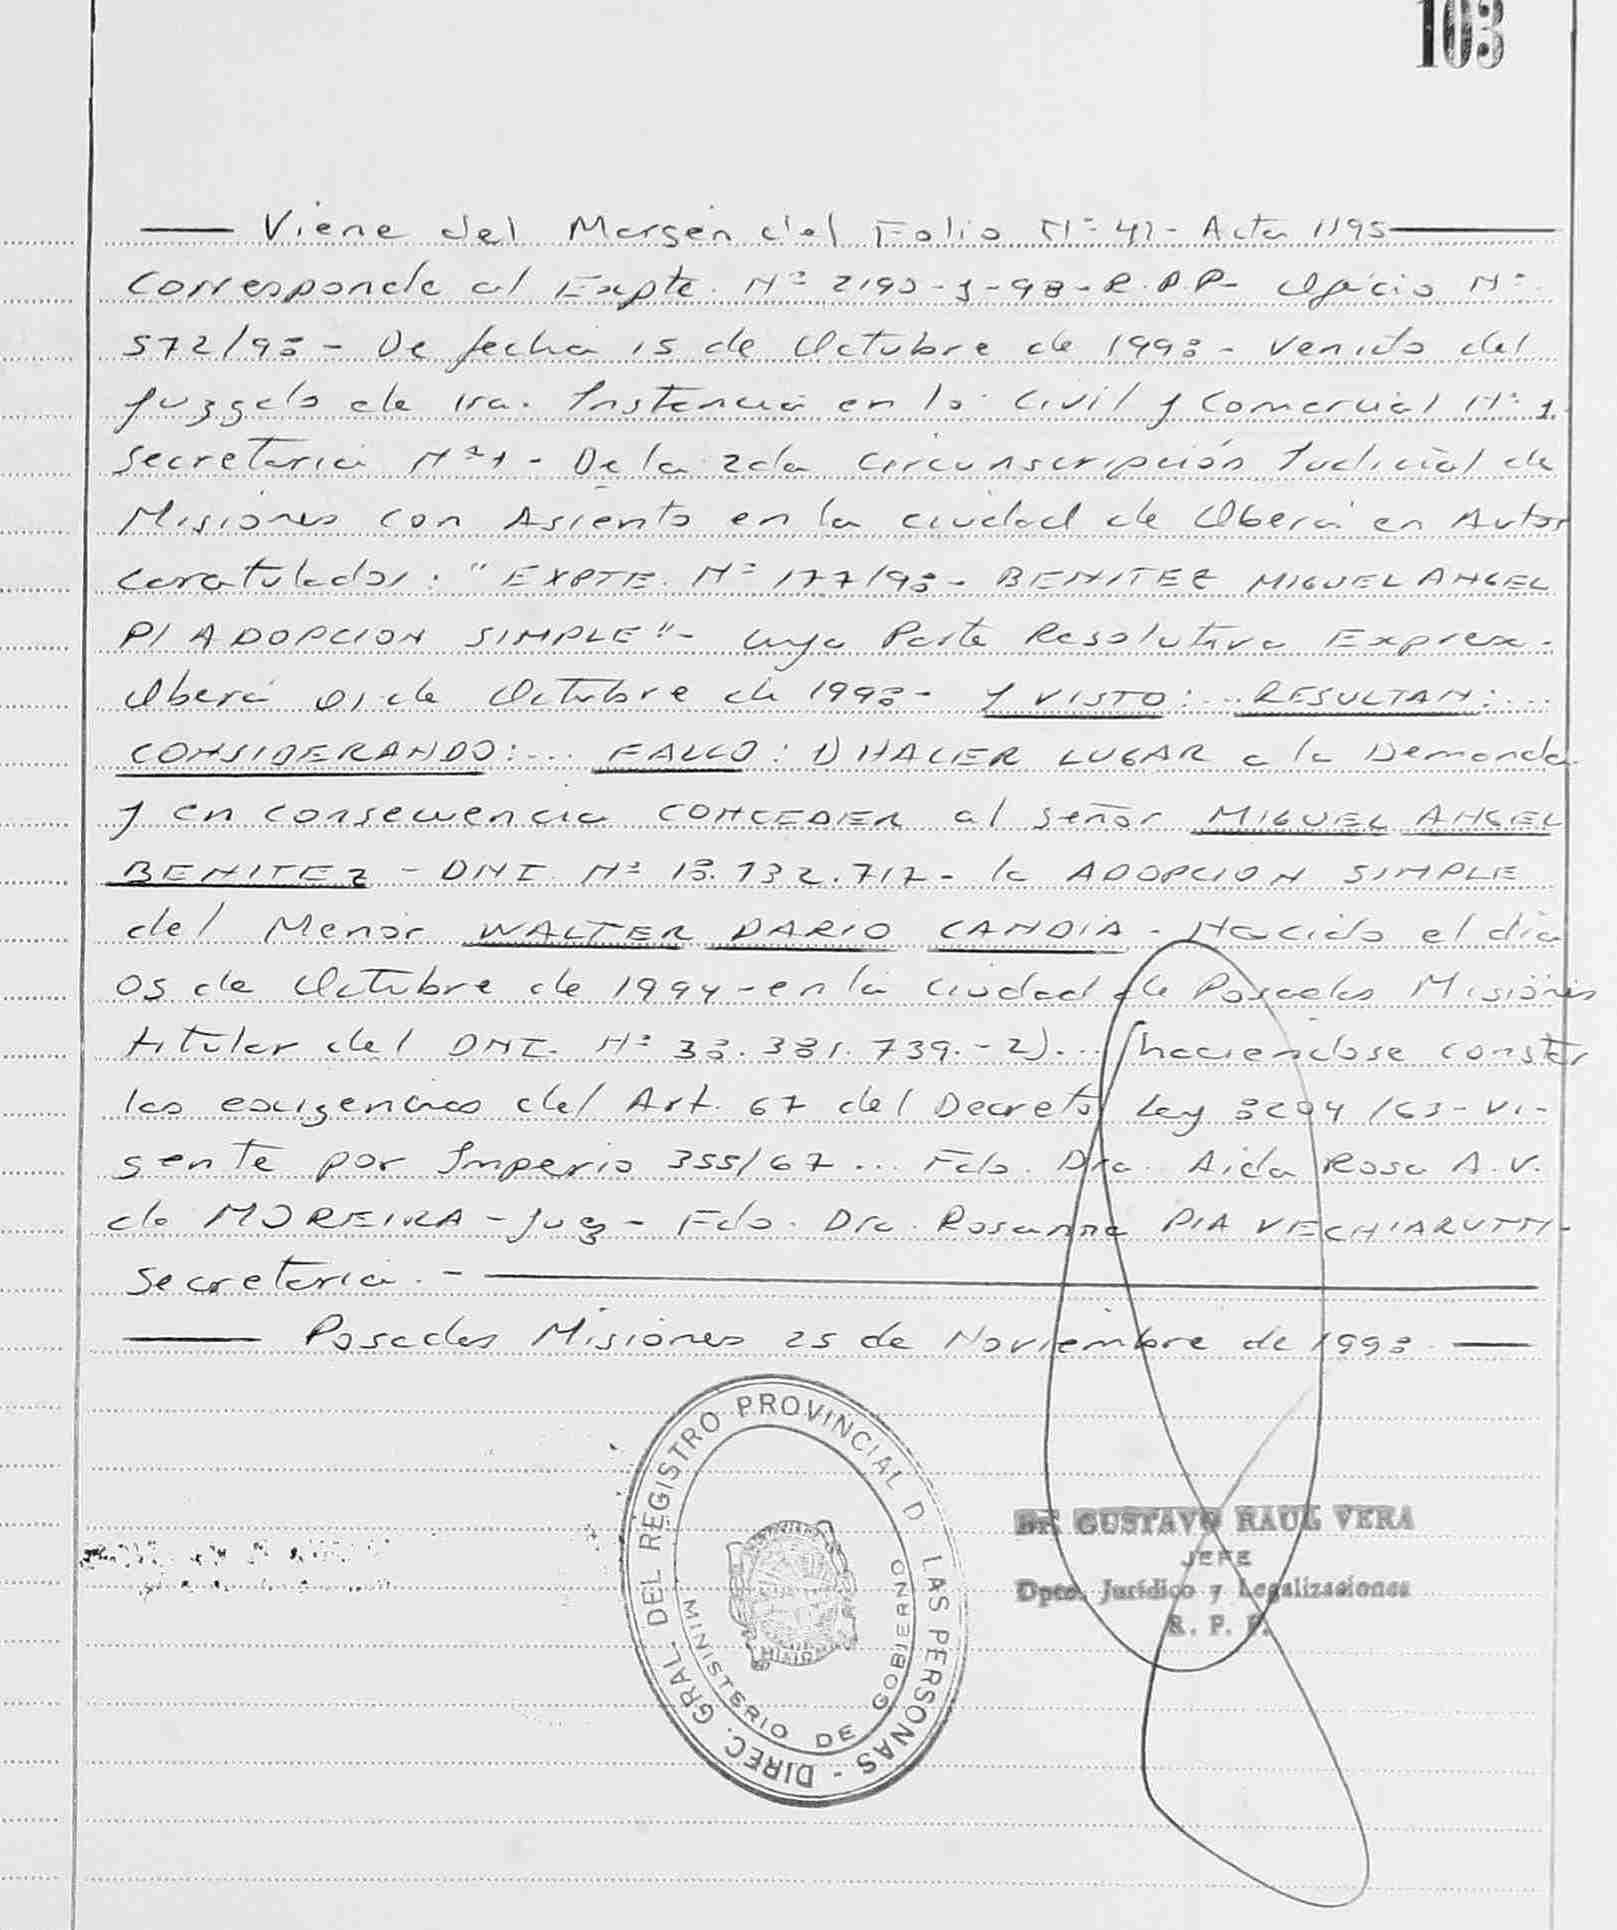 103
Viene del Margen del Folio Nº 41- Acta 1195
Corresponde al Expte. Nº 2190-J-93-R.P.P- Oficio Nº
572/93 - De fecha 15 de Octubre de 1993 - Venido del
Juzgado de 1ra. Instancia en lo Civil y Comercial Nº 1.
Secretaria Nº 1 - De la 2da Circunscripción Judicial de
Misiones con Asiento en la ciudad de Oberá en Autos
Caratulados: "EXPTE. Nº 177/93- BENITEZ MIGUEL ANGEL
P/ ADOPCION SIMPLE"- Cuya Parte Resolutiva Expresa-
Oberá 01 de Octubre de 1993- Y VISTO:... RESULTAN:...
CONSIDERANDO:... FALLO: 1) HACER LUGAR a la Demanda
y en consecuencia CONCEDER al señor MIGUEL ANGEL
BENITEZ - DNI. Nº 13.732.717- la ADOPCION SIMPLE
del Menor WALTER DARIO CANDIA - Nacido el día
05 de Octubre de 1994 - en la Ciudad de Posadas Misiones
titular del DNI. Nº 33.381.739.- 2)... (haciendose constar
las exigencias del Art. 67 del Decreto Ley 8204/63- Vi-
gente por Imperio 355/67... Fdo. Dra. Aida Rosa A.V.
de MOREIRA - Juez - Fdo. Dra. Rosanna PIA VECHIARUTTI-
Secretaria.-
Posadas Misiones 25 de Noviembre de 1993.
DIREC. GRAL. DEL REGISTRO PROVINCIAL D LAS PERSONAS -
MINISTERIO DE GOBIERNO
Dr. GUSTAVO RAUL VERA
JEFE
Dpto. Jurídico y Legalizaciones
R. P. P.